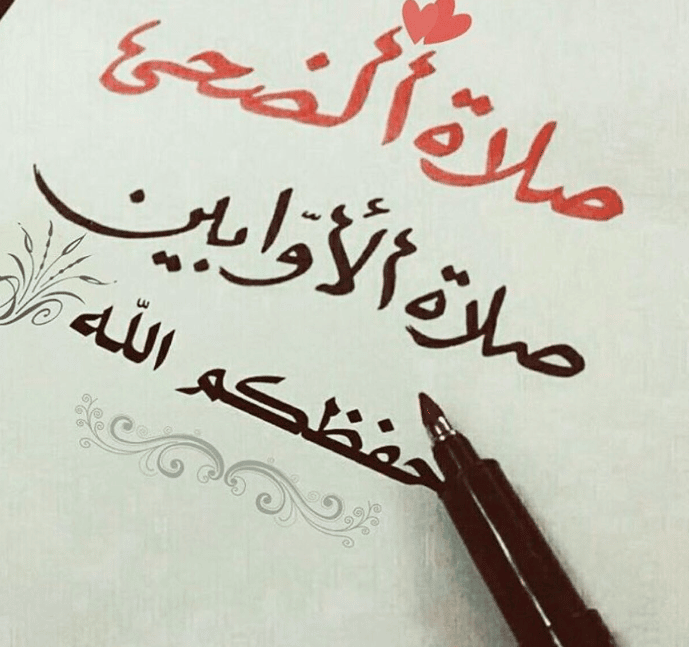 صلاة ألضحئ
صلاة ألأوّابين
حفظكم اللّه